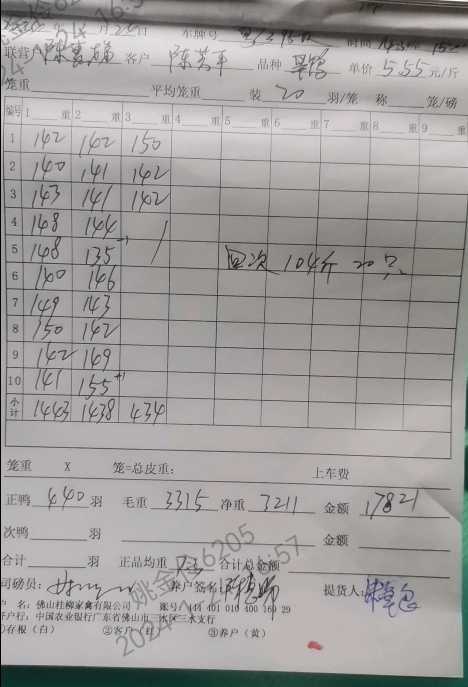 月20日 车牌号 时间
联营 客户 陈芸平 品种 单价 5.55 元/斤
笼重 平均笼重 装 20 羽/笼 称 笼/磅
编号 1 重 2 重 3 重 4 重 5 重 6 重 7 重 8 重 9 重
1 142 142 150
2 140 141 142
3 143 141 142
4 148 144
5 148 135 -1
回次 104斤 20只
6 140 146
7 149 143
8 150 142
9 142 149
10 141 155 +1
小计 1443 1438 434
笼重 X 笼=总皮重: 上车费
正鸭 440 羽 毛重 3315 净重 3211 金额 17821
次鸭 羽 金额
合计 羽 正品均重 合计总金额
司磅员: 养户签名: 提货人:
户 名: 佛山桂柳家禽有限公司 账号: 44 401 010 400 160 29
开户行: 中国农业银行广东省佛山市三水区三水支行
①存根（白） ②客户（红） ③养户（黄）
姚金 6205
2024 6:57